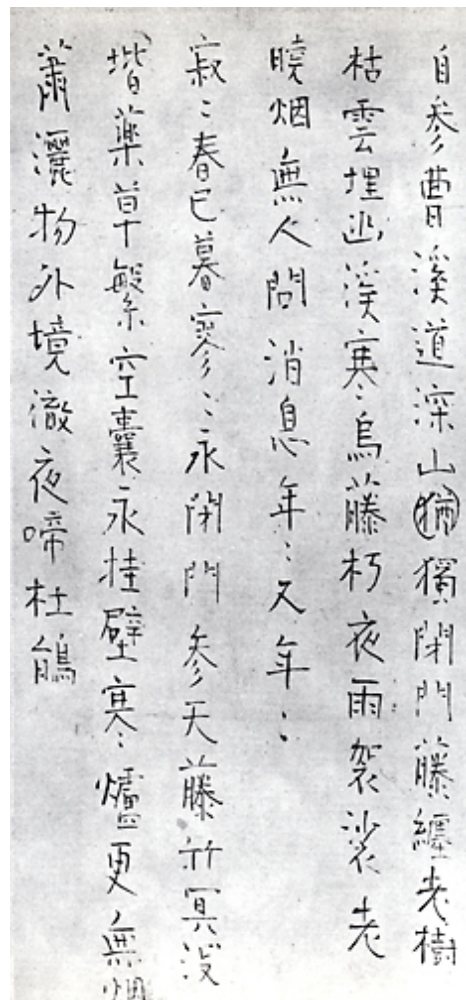 自参曹溪道深山獨閉門藤纏老樹
枯雲埋幽溪寒烏藤朽夜雨袈裟老
曉烟無人問消息年〻又年〻
寂〻春已暮寥〻永閉門参天藤竹冥没
堦藥草繁空囊永挂壁寒爐更無烟
蕭灑物外境徹夜啼杜鵑